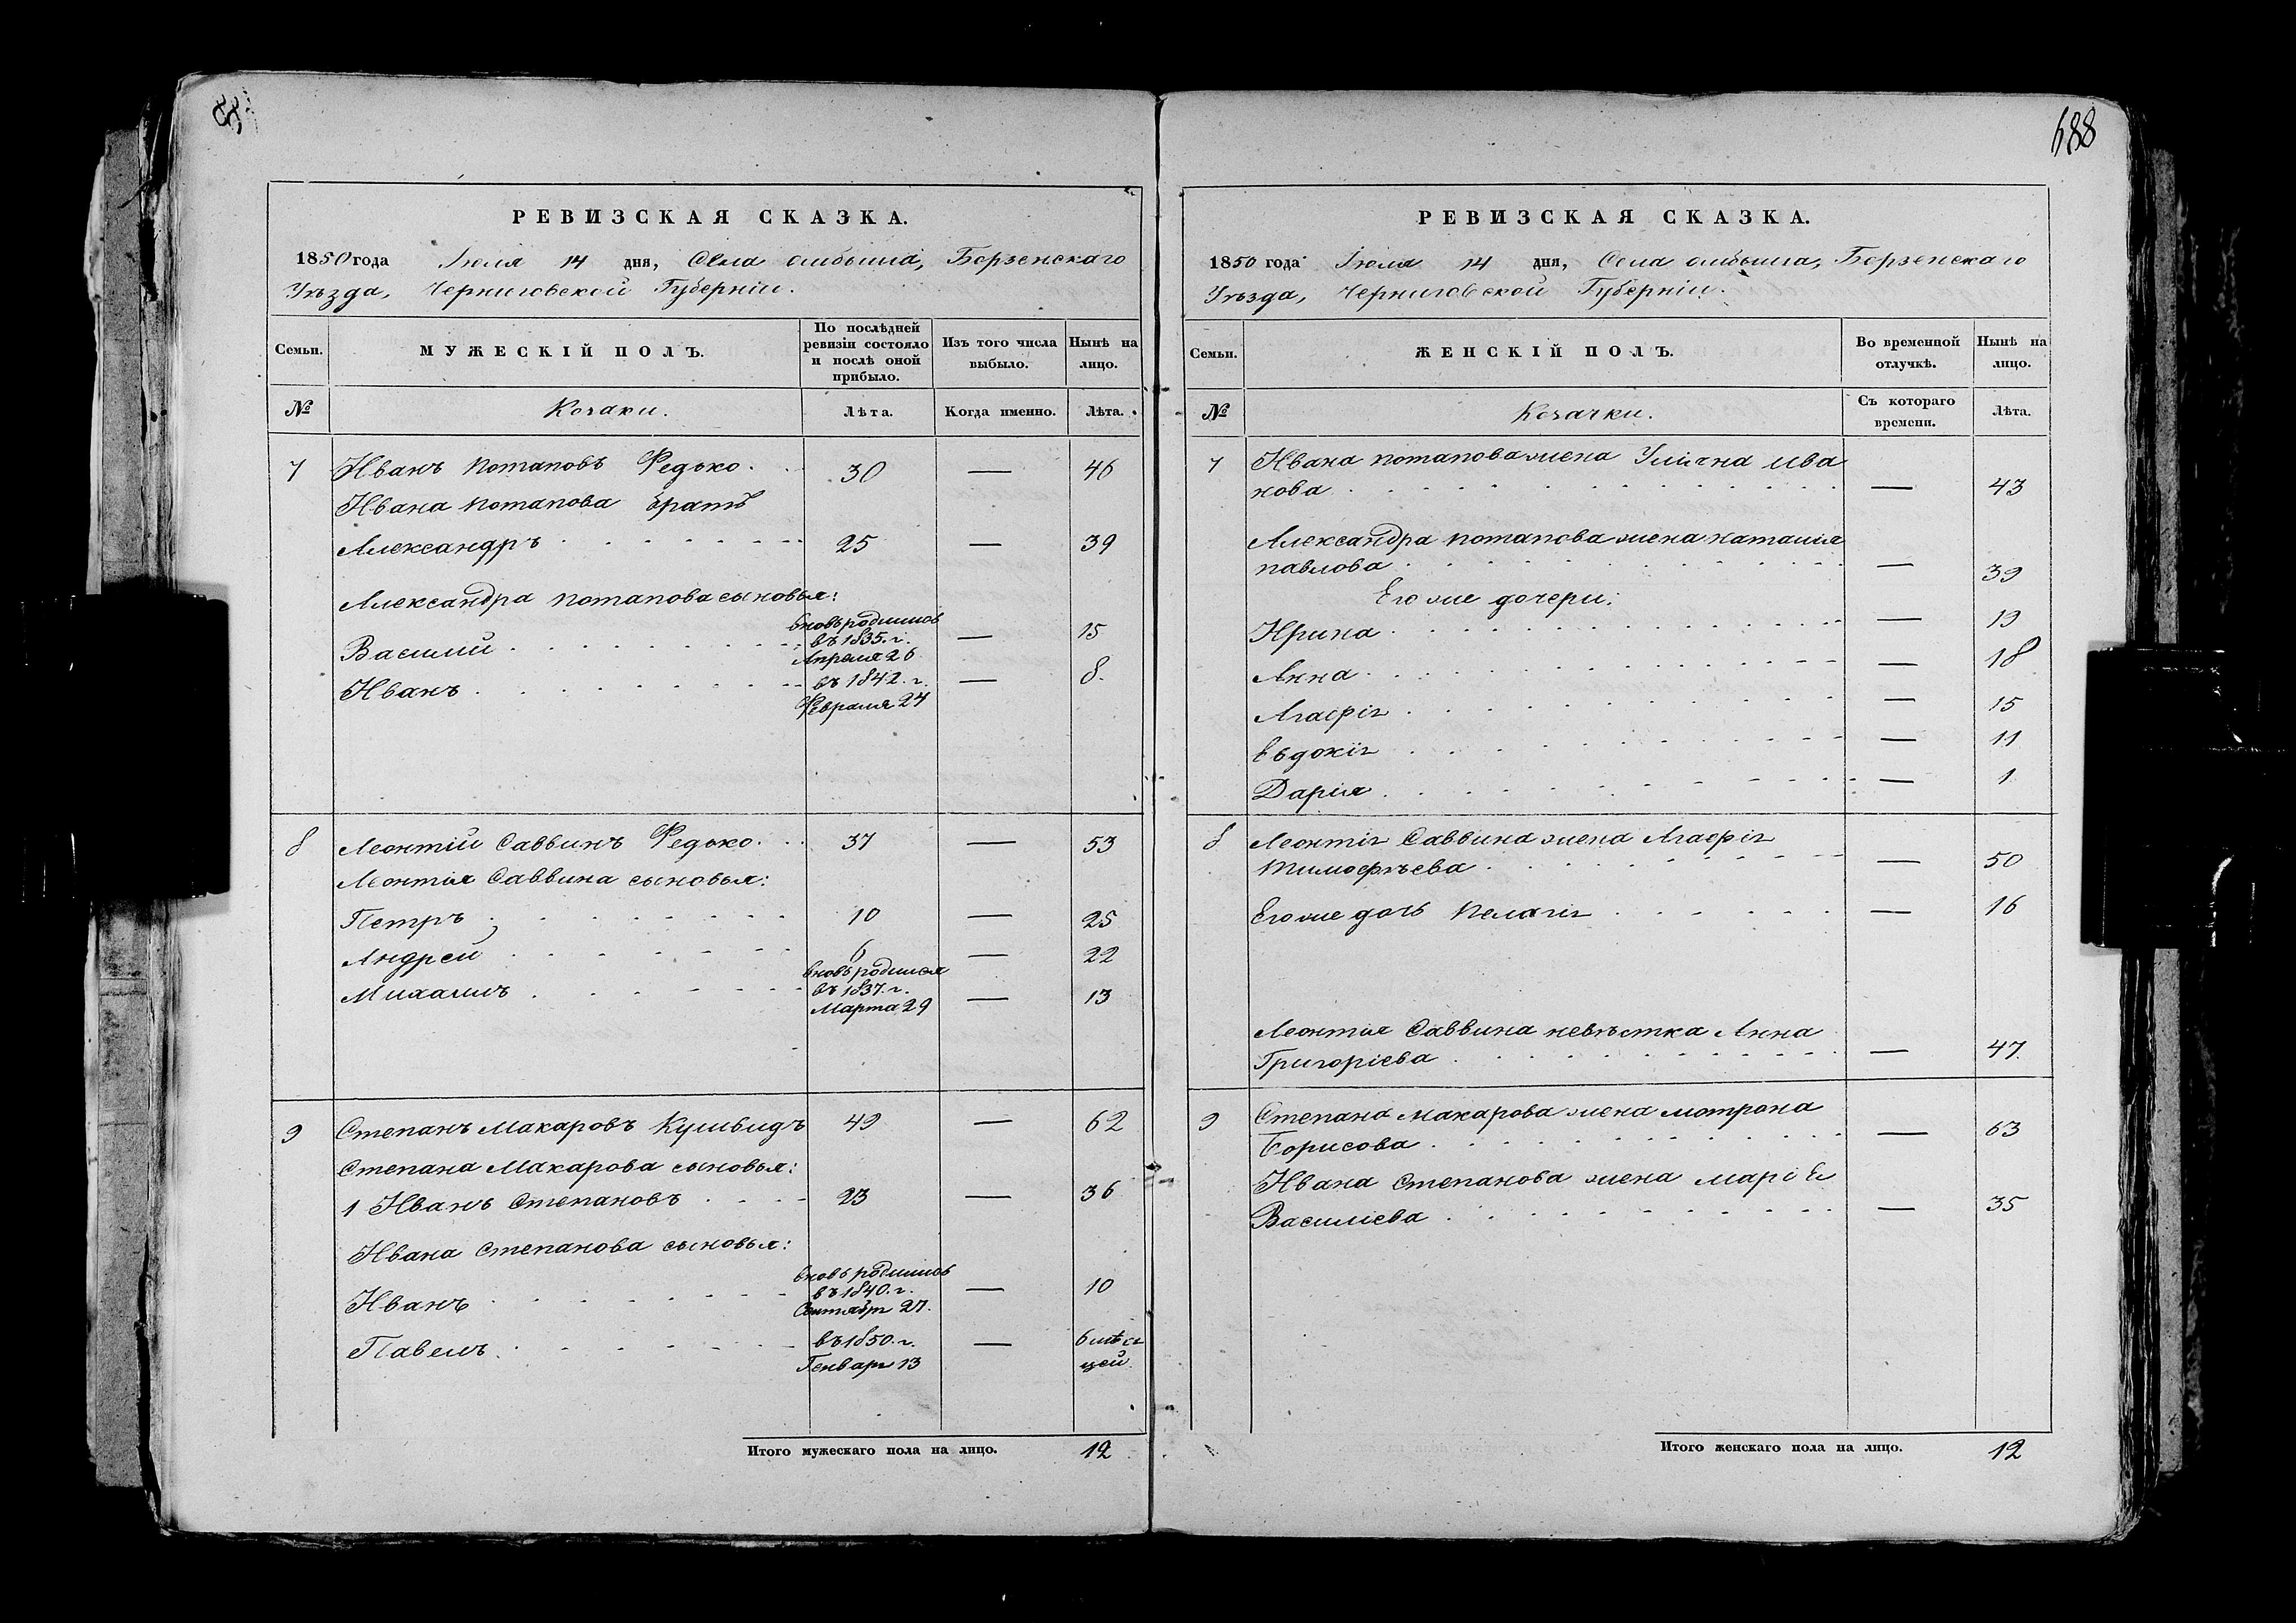 688
РЕВИЗСКАЯ СКАЗКА.
1850 года Іюля 14 дня, Села Омбыша, Борзенскаго
Уѣзда, Черниговской Губерніи.
Семьи. МУЖЕСКІЙ ПОЛЪ. По послѣдней ревизіи состояло и послѣ оной прибыло. Изъ того числа выбыло. Нынѣ на лицо.
№ Козаки. Лѣта. Когда именно. Лѣта.
7 Иванъ Потаповъ Федько. 30 — 46
Ивана Потапова братъ
Александръ 25 — 39
Александра Потапова сыновья:
вновь родились
Василий въ 1835. г. — 15
Апреля 26
Иванъ въ 1842. г. — 8.
Февраля 24
8 Леонтій Саввинъ Федько. 37 — 53
Леонтія Саввина сыновья:
Петръ 10 — 25
Андрей 6 — 22
вновь родился
Михаилъ въ 1837. г. — 13
Марта 29
9 Степанъ Макаровъ Куливидъ 49 — 62
Степана Макарова сыновья:
1 Иванъ Степановъ 23 — 36
Ивана Степанова сыновья:
вновь родились
Иванъ въ 1840. г. — 10
Сентября 27.
Павелъ въ 1850. г. — 6 мѣся
Генваря 13 цей
Итого мужескаго пола на лицо. 12
РЕВИЗСКАЯ СКАЗКА.
1850 года Іюля 14 дня, Села Омбыша, Борзенскаго
Уѣзда, Черниговской Губерніи.
Семьи. ЖЕНСКІЙ ПОЛЪ. Во временной отлучкѣ. Нынѣ на лицо.
№ Козачки. Съ котораго времени. Лѣта.
7 Ивана Потапова жена Уліяна Ива
нова — 43
Александра Потапова жена Наталія
Павлова — 39
Его же дочери:
Ирина — 19
Анна — 18
Агафія — 15
Евдокія — 11
Дарія — 1
8 Леонтія Саввина жена Агафія
Тимофѣева — 50
Его же дочь Пелагія — 16
Леонтія Саввина невѣстка Анна
Григоріева — 47.
9 Степана Макарова жена Мотрона
Борисова — 63
Ивана Степанова жена Марія
Василіева — 35
Итого женскаго пола на лицо. 12